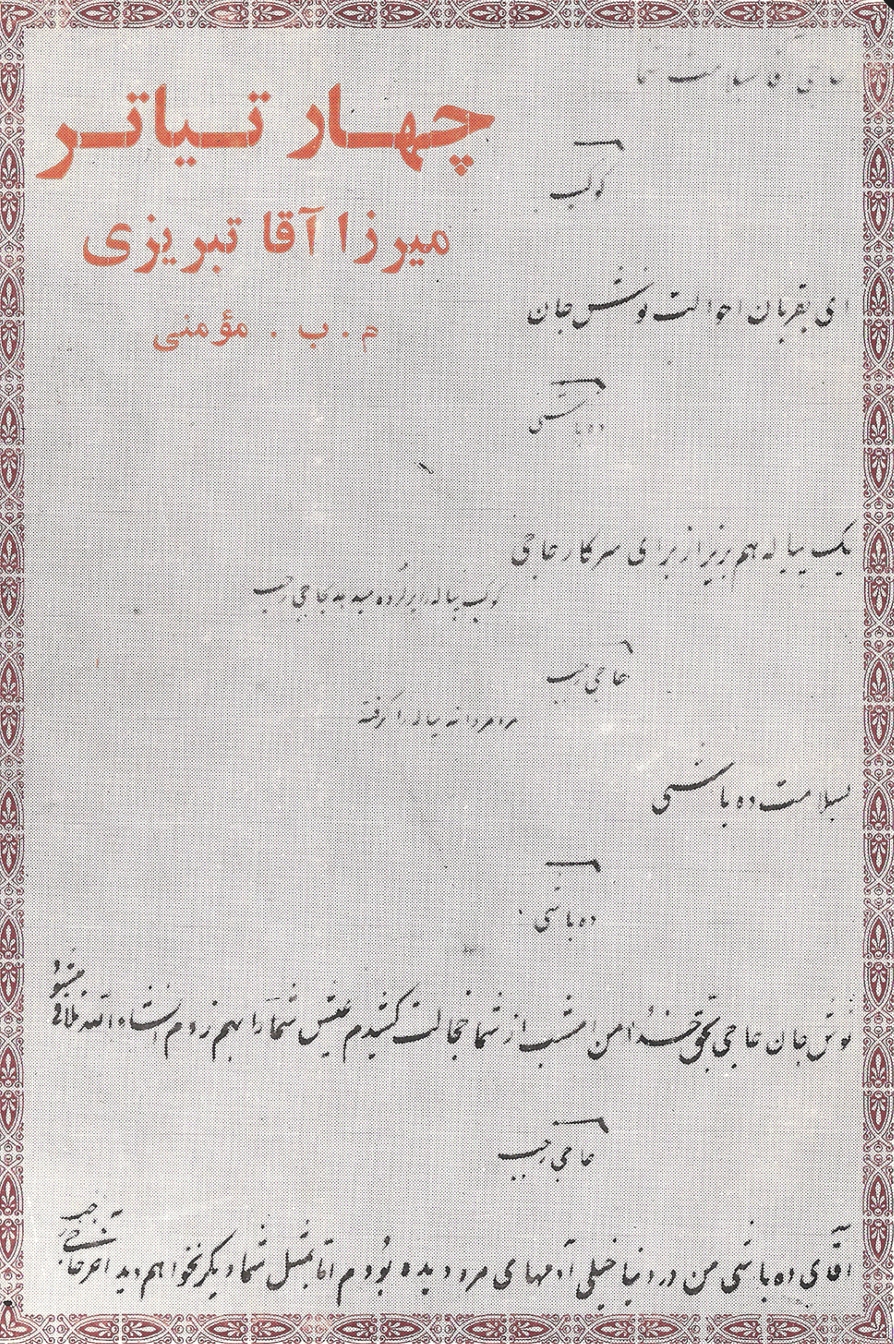 چهار تیاتر
میرزا آقا تبریزی
م . ب . مؤمنی
حاجی آقا بسلامت شما
کوکب
ای بقربان احوالت نوش جان
ده باشی
یک پیاله هم بریز از برای سرکار حاجی
کوکب پیاله را پر کرده میدهد بحاجی رجب
حاجی رجب
مردمردانه پیاله را گرفته
بسلامت ده باشی
ده باشی
نوش جان حاجی بحق خدا من امشب از شما خجالت کشیدم عیش شما را بهم زدم انشاءالله تلافی میشود
حاجی رجب
آقای ده باشی من در دنیا خیلی آدمهای مرد دیده بودم اما بمثل شما دیگر نخواهم دید آخر حاجی رجب